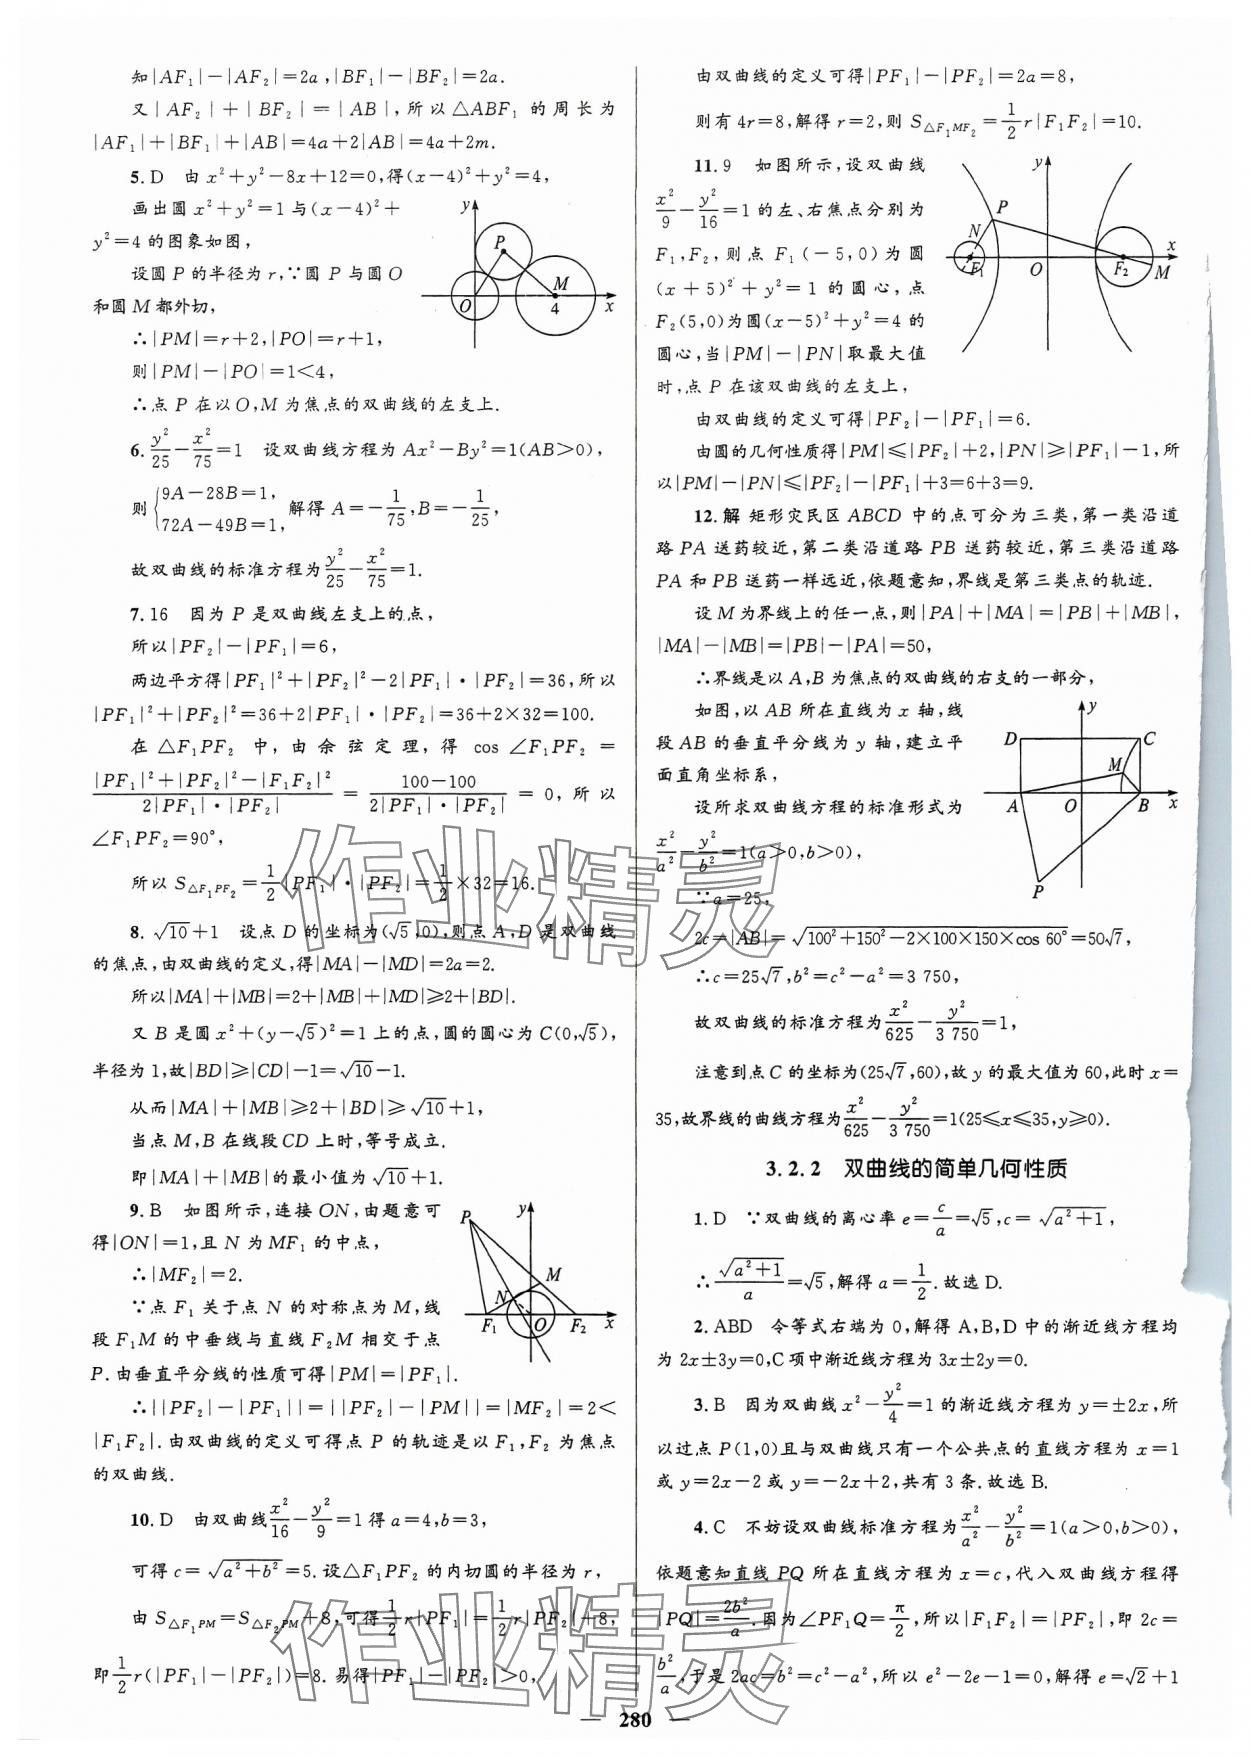 知|AF₁|－|AF₂|＝2a,|BF₁|－|BF₂|＝2a.
又|AF₂|＋|BF₂|＝|AB|,所以△ABF₁ 的周长为
|AF₁|＋|BF₁|＋|AB|＝4a＋2|AB|＝4a＋2m.
5.D 由 x²＋y²－8x＋12＝0,得(x－4)²＋y²＝4,
画出圆 x²＋y²＝1 与(x－4)²＋
y²＝4 的图象如图,
设圆 P 的半径为 r,∵圆 P 与圆 O
和圆 M 都外切,
∴|PM|＝r＋2,|PO|＝r＋1,
则|PM|－|PO|＝1＜4,
∴点 P 在以 O,M 为焦点的双曲线的左支上.
y
P
M
O
4
x
6. y²/25－x²/75＝1 设双曲线方程为 Ax²－By²＝1(AB＞0),
则{9A－28B＝1, 72A－49B＝1, 解得 A＝－1/75,B＝－1/25,
故双曲线的标准方程为 y²/25－x²/75＝1.
7.16 因为 P 是双曲线左支上的点,
所以|PF₂|－|PF₁|＝6,
两边平方得|PF₁|²＋|PF₂|²－2|PF₁|·|PF₂|＝36,所以
|PF₁|²＋|PF₂|²＝36＋2|PF₁|·|PF₂|＝36＋2×32＝100.
在△F₁PF₂ 中,由余弦定理,得 cos ∠F₁PF₂＝
(|PF₁|²＋|PF₂|²－|F₁F₂|²)/(2|PF₁|·|PF₂|)＝(100－100)/(2|PF₁|·|PF₂|)＝0,所以
∠F₁PF₂＝90°,
所以 S△F₁PF₂＝1/2|PF₁|·|PF₂|＝1/2×32＝16.
8. √10＋1 设点 D 的坐标为(√5,0),则点 A,D 是双曲线
的焦点,由双曲线的定义,得|MA|－|MD|＝2a＝2.
所以|MA|＋|MB|＝2＋|MB|＋|MD|≥2＋|BD|.
又 B 是圆 x²＋(y－√5)²＝1 上的点,圆的圆心为 C(0,√5),
半径为 1,故|BD|≥|CD|－1＝√10－1.
从而|MA|＋|MB|≥2＋|BD|≥√10＋1,
当点 M,B 在线段 CD 上时,等号成立.
即|MA|＋|MB|的最小值为√10＋1.
9.B 如图所示,连接 ON,由题意可
得|ON|＝1,且 N 为 MF₁ 的中点,
∴|MF₂|＝2.
∵点 F₁ 关于点 N 的对称点为 M,线
段 F₁M 的中垂线与直线 F₂M 相交于点
P.由垂直平分线的性质可得|PM|＝|PF₁|.
∴||PF₂|－|PF₁||＝||PF₂|－|PM||＝|MF₂|＝2＜
|F₁F₂|.由双曲线的定义可得点 P 的轨迹是以 F₁,F₂ 为焦点
的双曲线.
P
y
M
N
F₁
O
F₂
x
10.D 由双曲线 x²/16－y²/9＝1 得 a＝4,b＝3,
可得 c＝√(a²＋b²)＝5.设△F₁PF₂ 的内切圆的半径为 r,
由 S△F₁PM＝S△F₂PM＋8,可得 1/2 r|PF₁|＝1/2 r|PF₂|＋8,
即 1/2 r(|PF₁|－|PF₂|)＝8.易得|PF₁|－|PF₂|＞0,
由双曲线的定义可得|PF₁|－|PF₂|＝2a＝8,
则有 4r＝8,解得 r＝2,则 S△F₁MF₂＝1/2 r|F₁F₂|＝10.
11.9 如图所示,设双曲线
x²/9－y²/16＝1 的左、右焦点分别为
F₁,F₂,则点 F₁(－5,0)为圆
(x＋5)²＋y²＝1 的圆心,点
F₂(5,0)为圆(x－5)²＋y²＝4 的
圆心,当|PM|－|PN|取最大值
时,点 P 在该双曲线的左支上,
y
P
N
F₁
O
F₂
x
M
由双曲线的定义可得|PF₂|－|PF₁|＝6.
由圆的几何性质得|PM|≤|PF₂|＋2,|PN|≥|PF₁|－1,所
以|PM|－|PN|≤|PF₂|－|PF₁|＋3＝6＋3＝9.
12.解 矩形灾民区 ABCD 中的点可分为三类,第一类沿道
路 PA 送药较近,第二类沿道路 PB 送药较近,第三类沿道路
PA 和 PB 送药一样远近,依题意知,界线是第三类点的轨迹.
设 M 为界线上的任一点,则|PA|＋|MA|＝|PB|＋|MB|,
|MA|－|MB|＝|PB|－|PA|＝50,
∴界线是以 A,B 为焦点的双曲线的右支的一部分,
如图,以 AB 所在直线为 x 轴,线
段 AB 的垂直平分线为 y 轴,建立平
面直角坐标系,
设所求双曲线方程的标准形式为
x²/a²－y²/b²＝1(a＞0,b＞0),
y
D
C
M
A
O
B
x
P
∵a＝25,
2c＝|AB|＝√(100²＋150²－2×100×150×cos 60°)＝50√7,
∴c＝25√7,b²＝c²－a²＝3 750,
故双曲线的标准方程为 x²/625－y²/3 750＝1,
注意到点 C 的坐标为(25√7,60),故 y 的最大值为 60,此时 x＝
35,故界线的曲线方程为 x²/625－y²/3 750＝1(25≤x≤35,y≥0).
3.2.2 双曲线的简单几何性质
1.D ∵双曲线的离心率 e＝c/a＝√5,c＝√(a²＋1),
∴√(a²＋1)/a＝√5,解得 a＝1/2.故选 D.
2.ABD 令等式右端为 0,解得 A,B,D 中的渐近线方程均
为 2x±3y＝0,C项中渐近线方程为 3x±2y＝0.
3.B 因为双曲线 x²－y²/4＝1 的渐近线方程为 y＝±2x,所
以过点 P(1,0)且与双曲线只有一个公共点的直线方程为 x＝1
或 y＝2x－2 或 y＝－2x＋2,共有 3 条.故选 B.
4.C 不妨设双曲线标准方程为 x²/a²－y²/b²＝1(a＞0,b＞0),
依题意知直线 PQ 所在直线方程为 x＝c,代入双曲线方程得
|PQ|＝2b²/a.因为∠PF₁Q＝π/2,所以|F₁F₂|＝|PF₂|,即 2c＝
b²/a,于是 2ac＝b²＝c²－a²,所以 e²－2e－1＝0,解得 e＝√2＋1
280
作业精灵
作业精灵